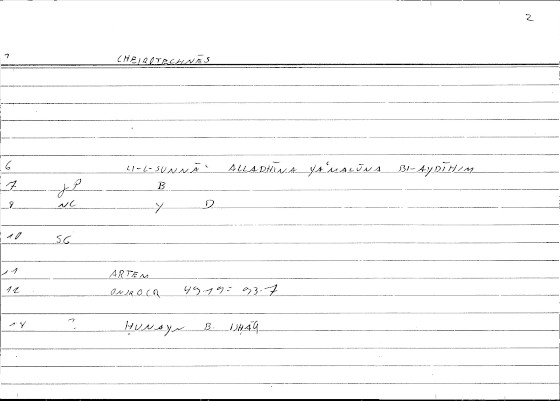 2
1 CHEIROTECHNĒS
6 LI-L-ṢUNNĀʿ ALLADHĪNA YAʿMALŪNA BI-AYDĪHIM
7 gP B
8 NC Y D
10 SG
11 ARTEM
12 49.19 = 93.7
14 ?. ḤUNAYN B. ISḤĀQ